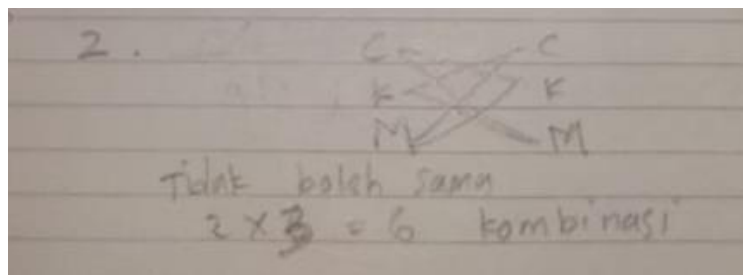 2. C C
K K
M M
Tidak boleh sama
2 x 3 = 6 kombinasi